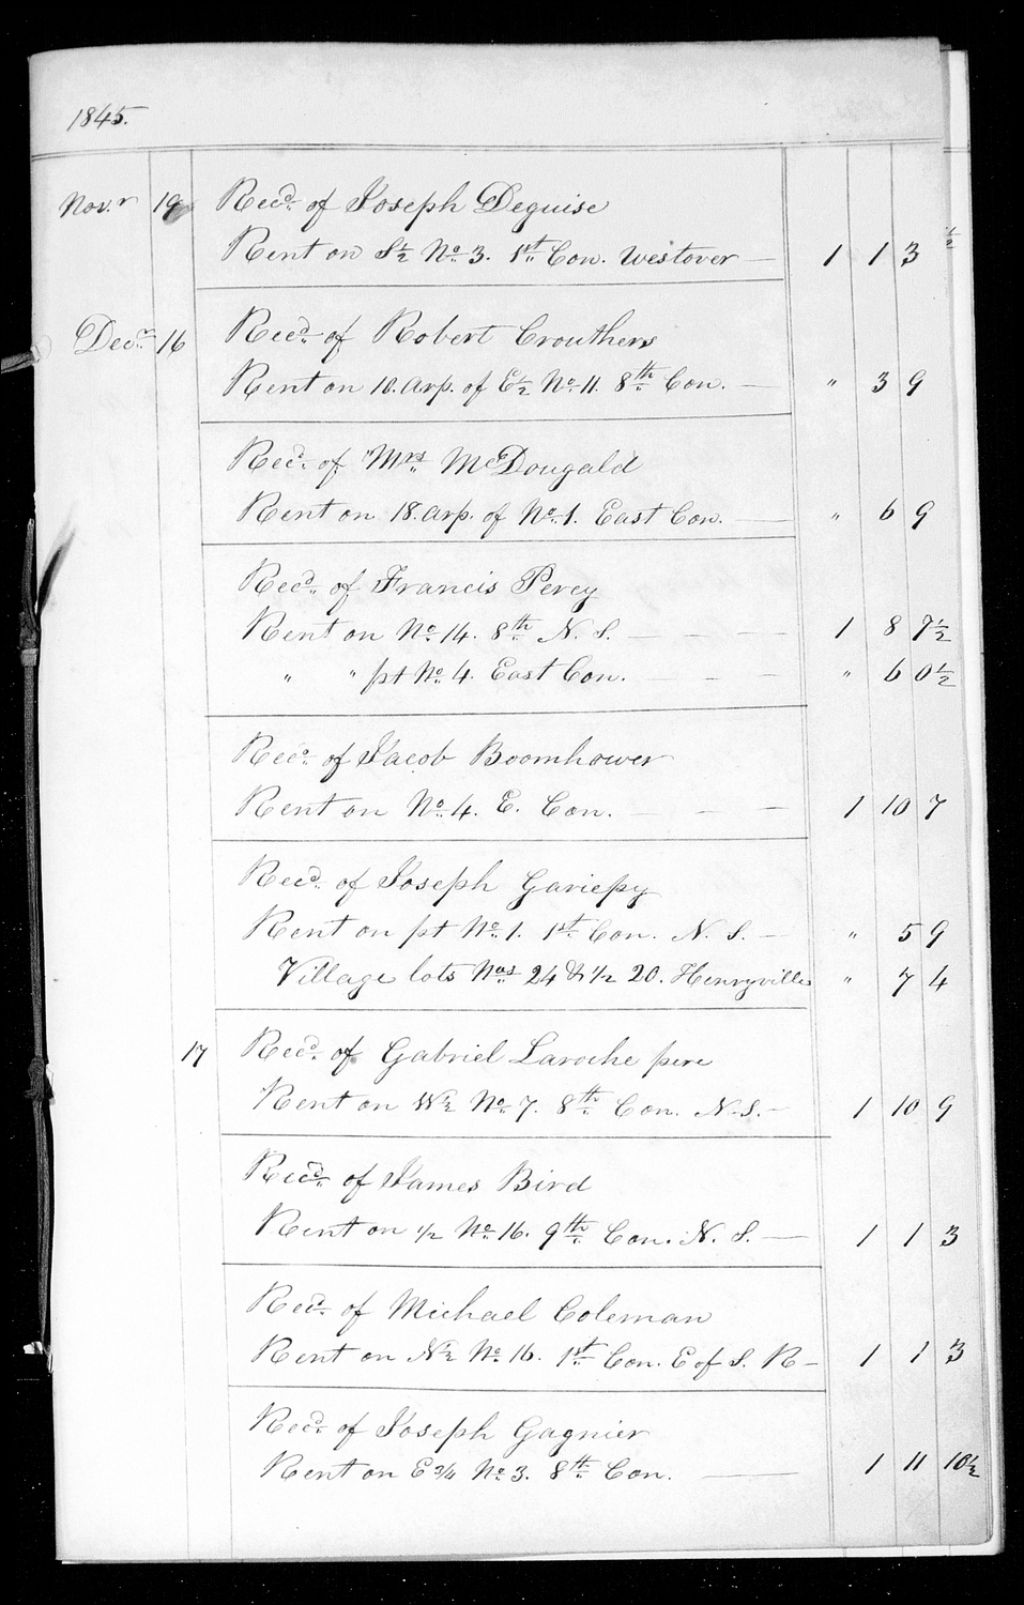 1845.
Nov.r 19 Recd. of Joseph Deguise
Rent on S½ No. 3. 1st Con. Westover — 1 1 3
Decr. 16 Recd. of Robert Crouthers
Rent on 10. Arp. of E½ No. 11. 8th Con. — " 3 9
Recd. of Mrs McDougald
Rent on 18. Arp. of No. 1. East Con. — " 6 9
Recd. of Francis Percy
Rent on No. 14. 8th N. S. — — — 1 8 7½
" " pt No. 4. East Con. — — — " 6 0½
Recd. of Jacob Boomhower
Rent on No. 4. E. Con. — — — 1 10 7
Recd. of Joseph Gariepy
Rent on pt No. 1. 1st Con. N. S. — " 5 9
Village lots Nos 24 & ½ 20. Henryville " 7 4
17 Recd. of Gabriel Laroche pere
Rent on W½ No. 7. 8th Con. N. S. — 1 10 9
Recd. of James Bird
Rent on ½ No. 16. 9th Con. N. S. — 1 1 3
Recd. of Michael Coleman
Rent on N½ No. 16. 1st Con. E of S. R — 1 1 3
Recd. of Joseph Gagnier
Rent on E ¾ No. 3. 8th Con. — — 1 11 10½